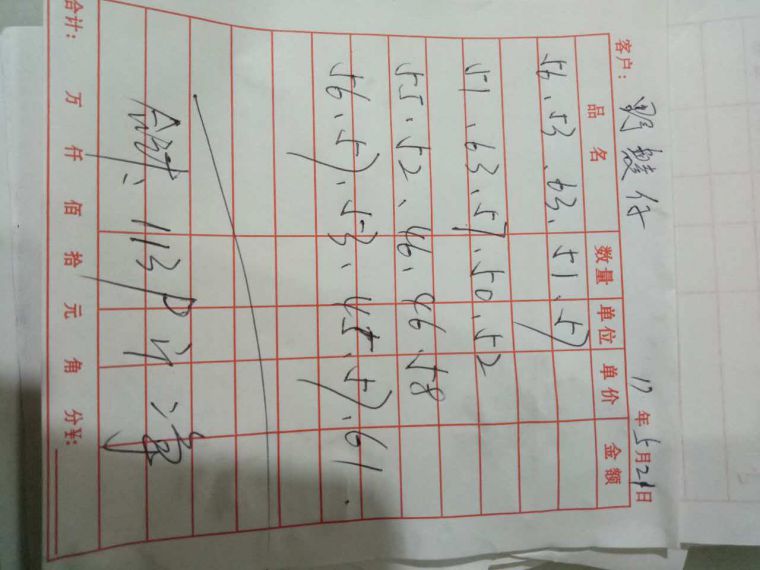 客户: 17年5月21日
品名 数量 单位 单价 金额
56、53、63、51、57
51、63、57、50、52
55、52、46、46、58
56、57、53、45、57、61.
113
合计: 万 仟 佰 拾 元 角 分 ¥: